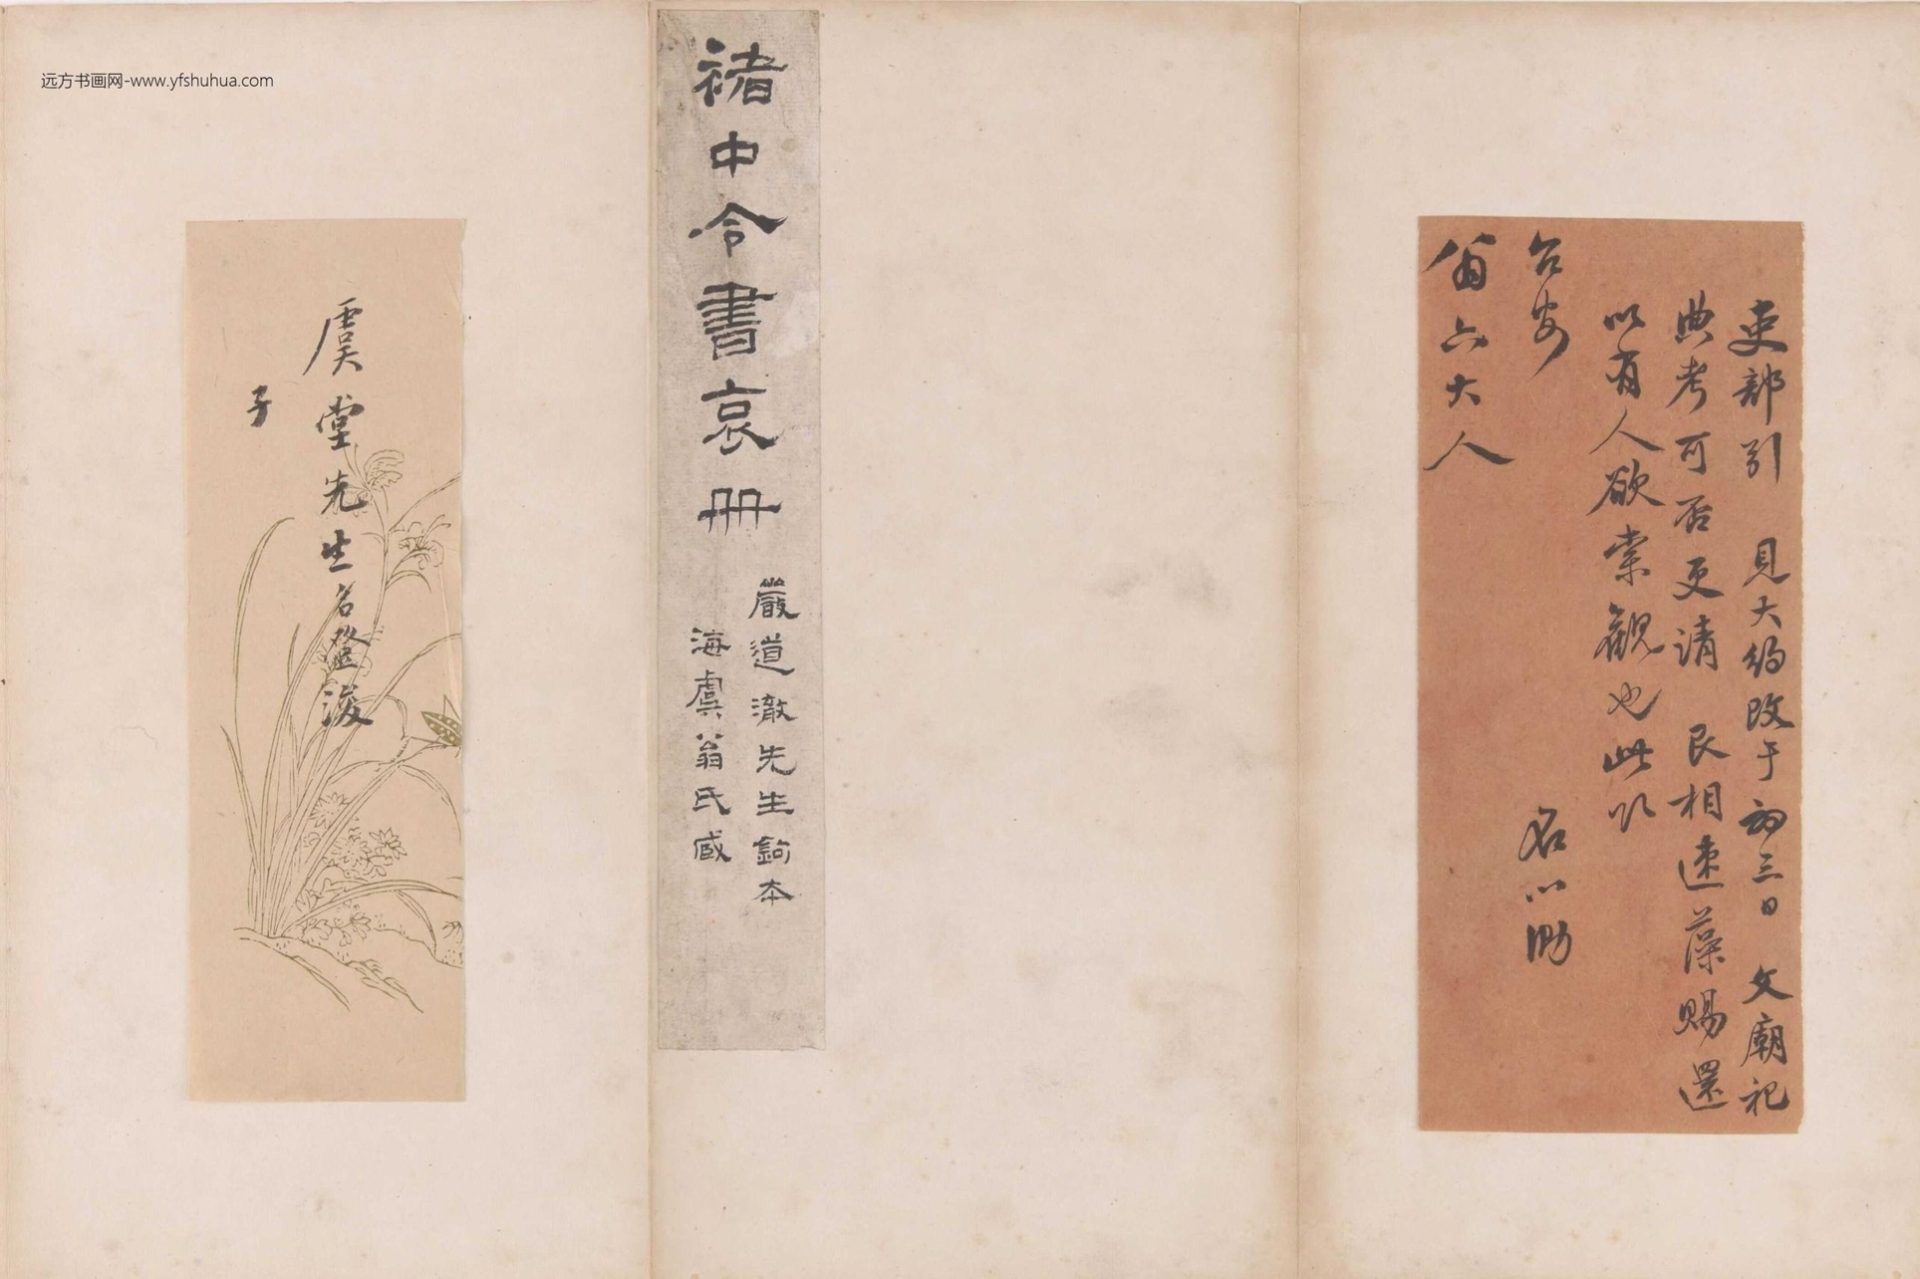 远方书画网-www.yfshuhua.com
吏部引 見大約改于初三日 文廟祀
典考可否更請 艮相速藻賜還
以有人欲索觀也此以
台安 名心泐
翁六大人
褚中令書哀冊
嚴道澈先生鉤本
海虞翁氏臧
虞堂先生名登浚
子